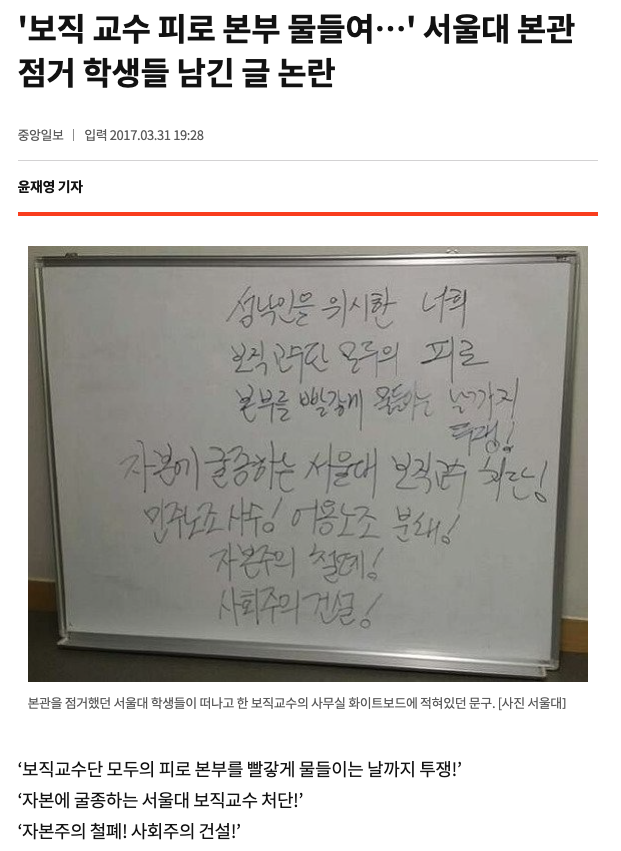 '보직 교수 피로 본부 물들여…' 서울대 본관
점거 학생들 남긴 글 논란
중앙일보 | 입력 2017.03.31 19:28
윤재영 기자
성낙인을 위시한 너희
보직교수단 모두의 피로
본부를 빨갛게 물들이는 날까지
투쟁!
자본에 굴종하는 서울대 보직교수 처단!
민주노조 사수! 어용노조 분쇄!
자본주의 철폐!
사회주의 건설!
본관을 점거했던 서울대 학생들이 떠나고 한 보직교수의 사무실 화이트보드에 적혀있던 문구. [사진 서울대]
‘보직교수단 모두의 피로 본부를 빨갛게 물들이는 날까지 투쟁!’
‘자본에 굴종하는 서울대 보직교수 처단!’
‘자본주의 철폐! 사회주의 건설!’